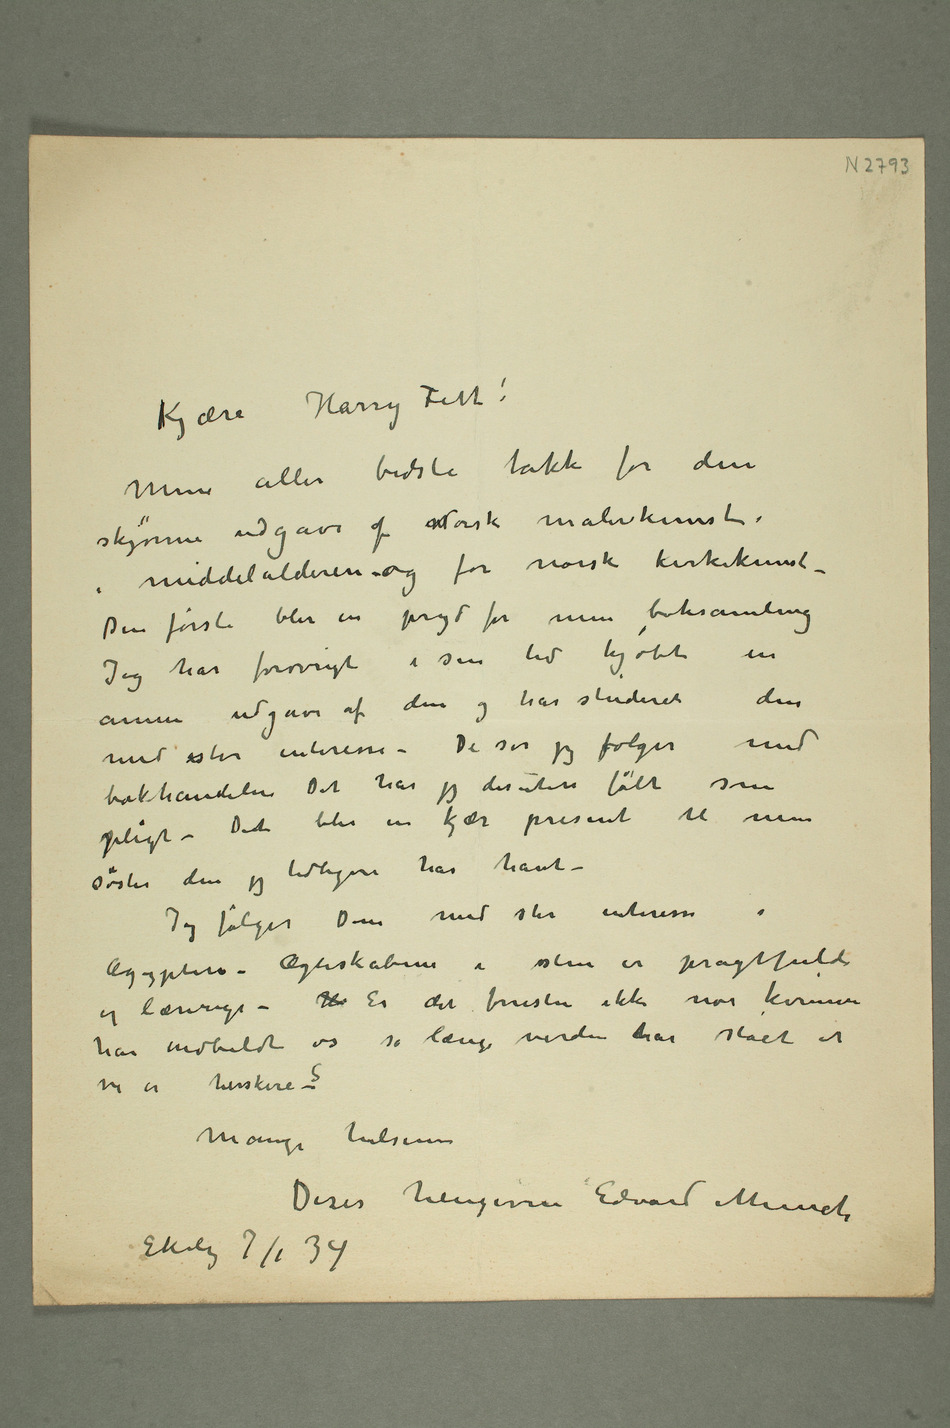 N 2793
Kjære Harry Fett!
Mine aller bedste takk for den
skjønne udgave af Norsk malerkunst
i middelalderen – og for norsk kirkekunst –
Den første blir en pryd for min boksamling
Jeg har forøvrigt i sin tid kjøbt en
annen udgave af den og har studeret den
med stor interesse – De ser jeg følger med
bokhandelen Det har jeg desuten følt som
pligt – Det blir en kjær present til min
søster den jeg tidligere har havt –
Jeg følger Dem med stor interesse i
Ægypten – Ægteskabene i sten er pragtfulde
og lærerige – Er det forresten ikke nor kvinnen
har indbildt os så længe verden har stået at
vi er herskere – ?
Mange hilsener
Deres hengivne Edvard Munch
Ekely 7/1 34